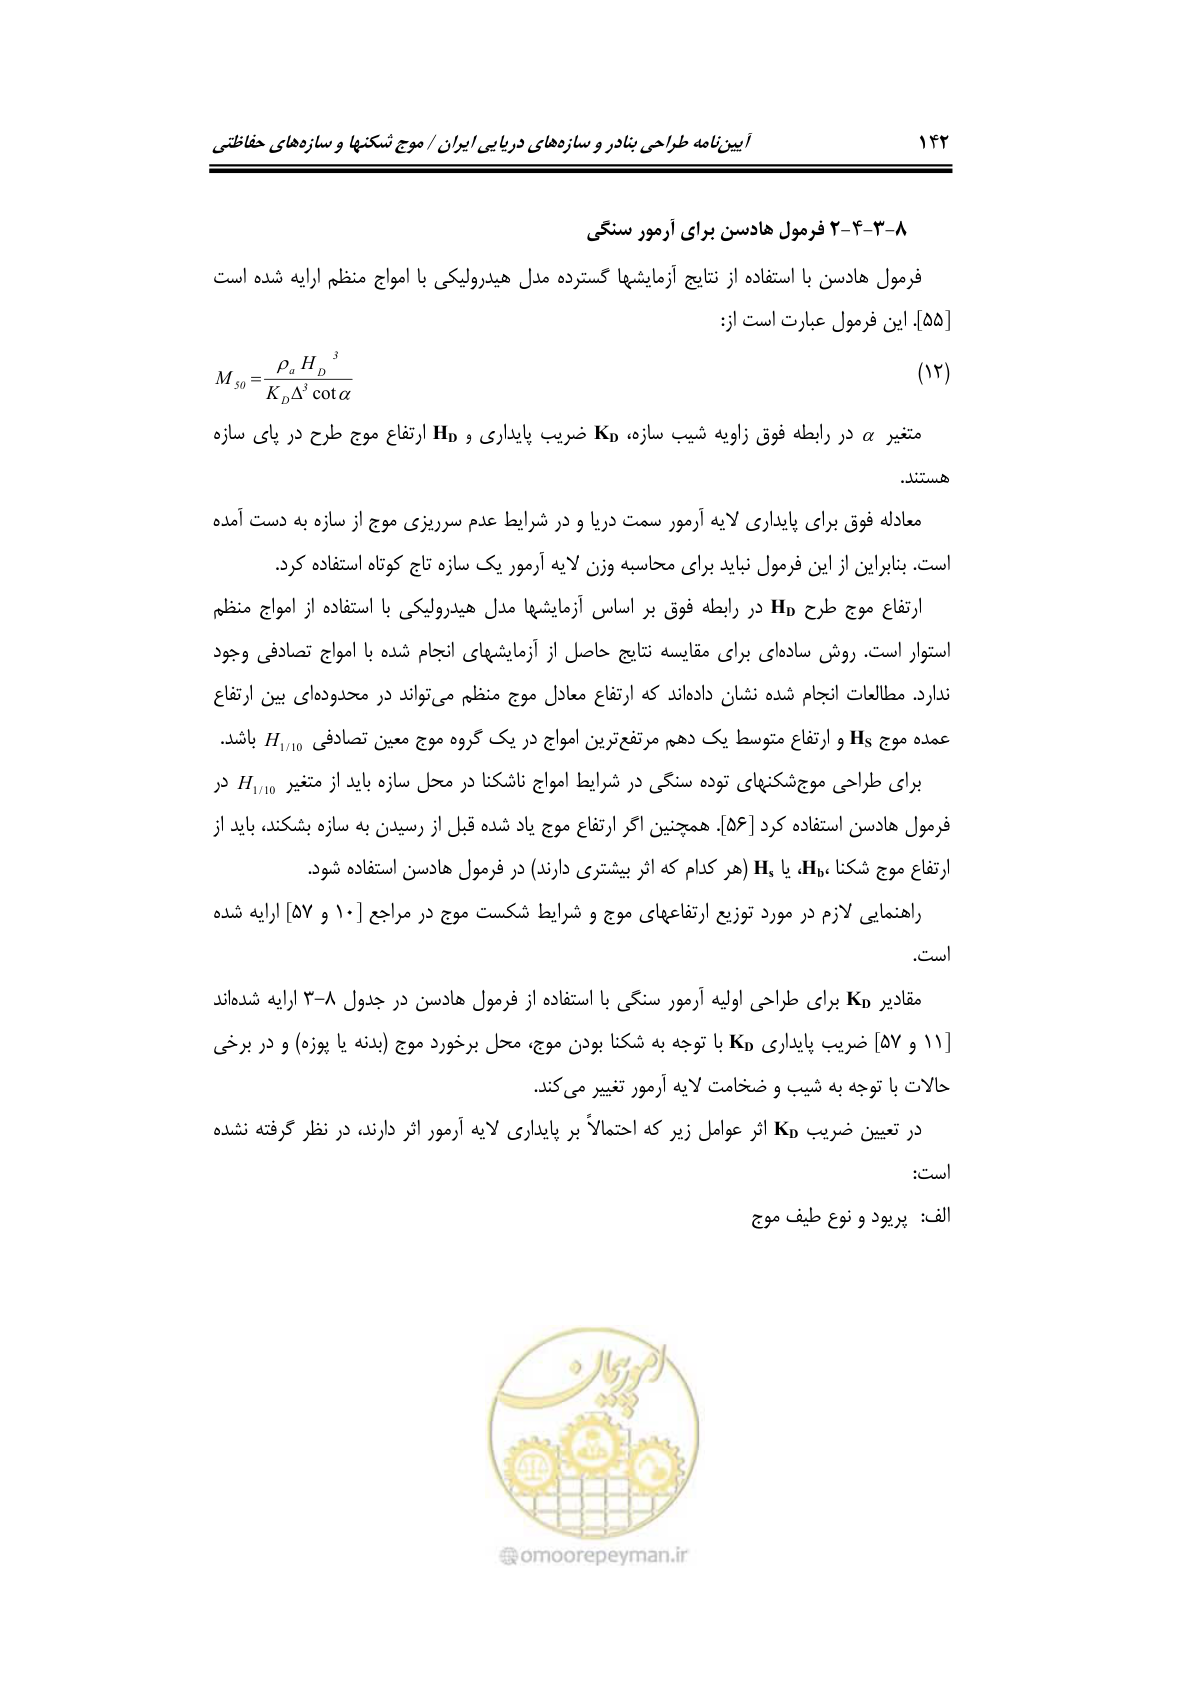 ۱۴۲ آیین‌نامه طراحی بنادر و سازه‌های دریایی ایران / موج شکنها و سازه‌های حفاظتی
۸-۳-۴-۲ فرمول هادسن برای آرمور سنگی
فرمول هادسن با استفاده از نتایج آزمایشها گسترده مدل هیدرولیکی با امواج منظم ارایه شده است
[۵۵]. این فرمول عبارت است از:
(۱۲) M_50 = ρ_a H_D^3 / K_D Δ^3 cot α
متغیر α در رابطه فوق زاویه شیب سازه، K_D ضریب پایداری و H_D ارتفاع موج طرح در پای سازه
هستند.
معادله فوق برای پایداری لایه آرمور سمت دریا و در شرایط عدم سرریزی موج از سازه به دست آمده
است. بنابراین از این فرمول نباید برای محاسبه وزن لایه آرمور یک سازه تاج کوتاه استفاده کرد.
ارتفاع موج طرح H_D در رابطه فوق بر اساس آزمایشها مدل هیدرولیکی با استفاده از امواج منظم
استوار است. روش ساده‌ای برای مقایسه نتایج حاصل از آزمایشهای انجام شده با امواج تصادفی وجود
ندارد. مطالعات انجام شده نشان داده‌اند که ارتفاع معادل موج منظم می‌تواند در محدوده‌ای بین ارتفاع
عمده موج H_S و ارتفاع متوسط یک دهم مرتفع‌ترین امواج در یک گروه موج معین تصادفی H_1/10 باشد.
برای طراحی موج‌شکنهای توده سنگی در شرایط امواج ناشکنا در محل سازه باید از متغیر H_1/10 در
فرمول هادسن استفاده کرد [۵۶]. همچنین اگر ارتفاع موج یاد شده قبل از رسیدن به سازه بشکند، باید از
ارتفاع موج شکنا ،H_b، یا H_s (هر کدام که اثر بیشتری دارند) در فرمول هادسن استفاده شود.
راهنمایی لازم در مورد توزیع ارتفاعهای موج و شرایط شکست موج در مراجع [۱۰ و ۵۷] ارایه شده
است.
مقادیر K_D برای طراحی اولیه آرمور سنگی با استفاده از فرمول هادسن در جدول ۸-۳ ارایه شده‌اند
[۱۱ و ۵۷] ضریب پایداری K_D با توجه به شکنا بودن موج، محل برخورد موج (بدنه یا پوزه) و در برخی
حالات با توجه به شیب و ضخامت لایه آرمور تغییر می‌کند.
در تعیین ضریب K_D اثر عوامل زیر که احتمالاً بر پایداری لایه آرمور اثر دارند، در نظر گرفته نشده
است:
الف: پریود و نوع طیف موج
امور پیمان
omoorepeyman.ir